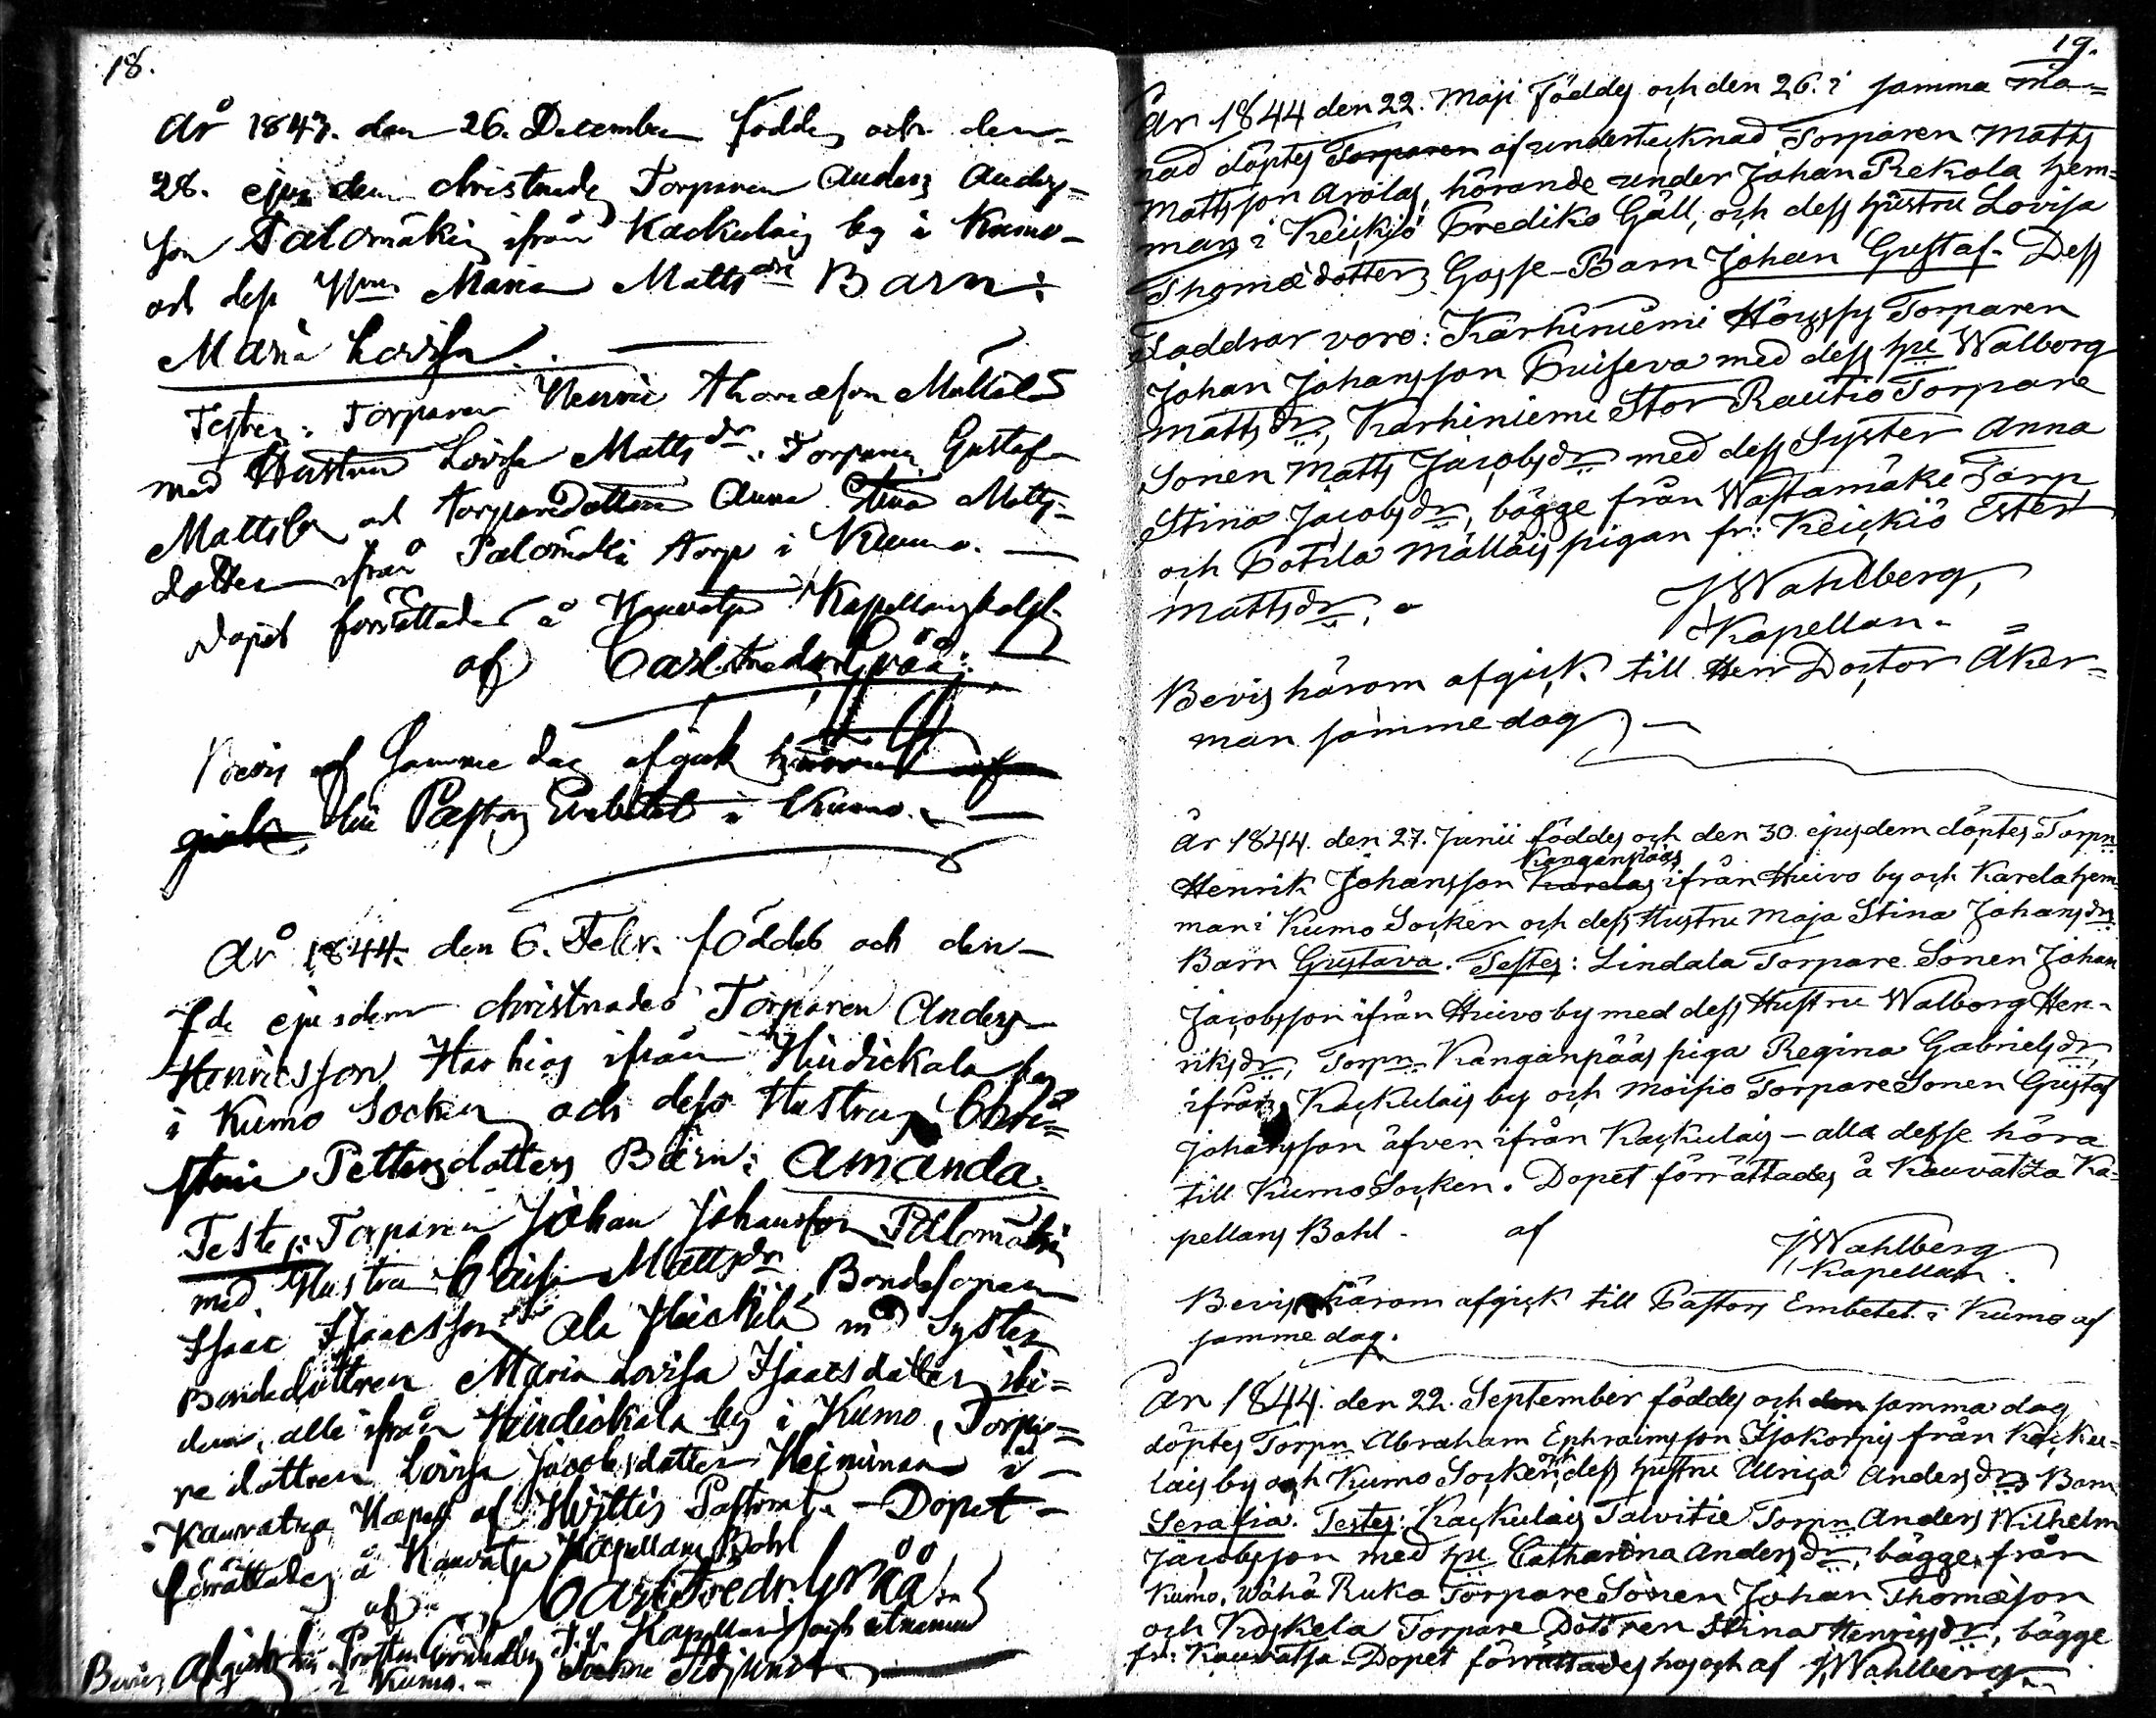 18.
År 1843. den 26. December föddes och den
28. ejusdem christnades Torparen Anders Anders=
son Palomäkis ifrån Kackulais by i Kumo
och dess Hus. Maria Mattsdr Barn:
Maria Lovisa.
Testes: Torparen Henric Thomæson Mattila
med Hustru Lovisa Mattsdr. Torparen Gustaf
Mattson och torparedottren Anna Stina Matts=
dotter ifrån Palomäki torp i Kumo.
Dopet förrättades å Kauvatsa Kapellansbohl
af Carl Fredr. Gråå:
Bevis af samme dag afgick härom af=
gick till Pastors Embetet i Kumo.
År 1844. den 6. Febr. föddes och den
f de ejusdem christnades Torparen Anders
Henricsson Harhios ifrån Hindickala by
i Kumo Socken och dess Hustru Chri=
stine Pettersdotters Barn: Amanda.
Testes: Torparen Johan Johansson Palomäki
med Hustru Caisa Mattsdr Bondesonen
Isaac Isaacsson Ala Heickilä md Syster
Bondedottren Maria Lovisa Isaacsdotter ibi=
dem, alle ifrån Hindickala by i Kumo, Torpa=
re dottren Lovisa Jacobsdotter Heinimaa i
Kauvatsa Kapell af Hvittis Pastorat. - Dopet
förrättades å Kauvatsa Kapellans Bohl
af Carl Fredr. Gråå
T.f. Kapellan och utnämnd
Bevis afgick till Prosten
i Kumo. Sockne Adjunct
19.
År 1844 den 22. Maji föddes och den 26. i samma må=
nad döptes Torparen af undertecknad Torparen Matts
Mattsson Arolas, hörande under Johan Rekola hem=
man i Keickiö Prediko Gäll, och dess hustru Lovisa
Thomædotters Gosse-Barn Johan Gustaf. Dess
Faddrar voro: Karhiniemi Höysfy Torparen
Johan Johansson Puiseva med dess hu Walborg
Mattsdr, Karhiniemi Stor Rautio Torpare
Sonen Matts Jacobsdr med dess Syster Anna
Stina Jacobsdr, bägge från Wastamäki Torp
och Potila Mällais pigan fr: Keickiö Ester
Mattsdr.
JWahlberg,
Kapellan.
Bevis härom afgick till Herr Doctor Åker=
man samme dag
År 1844. den 27. Junii föddes och den 30. ejusdem döptes Torpn
Kanganpääs
Henrik Johansson Karelas ifrån Huivo by och Karela hem
man i Kumo Socken och dess Hustru Maja Stina Johansdrs
Barn Gustava. Testes: Lindala Torpare Sonen Johan
Jacobsson ifrån Huivo by med dess Hustru Walborg Hen-
riksdr, Torpn Kanganpääs piga Regina Gabrielsdr,
ifrån Kackulais by och Moisio Torpare Sonen Gustaf
Johansson äfven ifrån Kackulais - alla desse höra
till Kumo Socken. Dopet förrättades å Kauvatza Ka-
pellans Bohl. af
JWahlberg
Kapellan.
Bevis härom afgick till Pastors Embetet i Kumo af
samme dag.
År 1844. den 22. September föddes och den samma dag
döptes Torpn Abraham Ephraimsson Isokorpis från Kacku=
och
lais by och Kumo Socken, dess hustru Ulrica Andersdrs Barn
Serafia. Testes: Kackulais Talvitie Torpn Anders Wilhelm
Jacobsson med hu Catharina Andersdr, bägge från
Kumo, Wähä Ruka Torpare Sonen Johan Thomæson
och Koskela Torpare Dottren Stina Henrisdr, bägge
fr: Kauvatsa Dopet förrättades hos och af JWahlberg